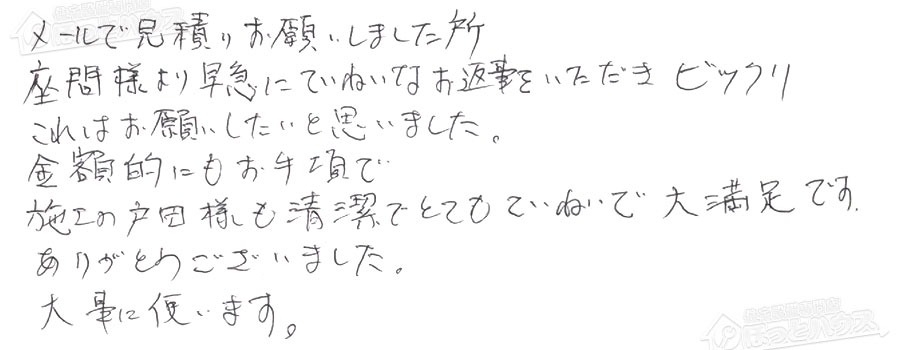 メールで見積りお願いしました所
座間様より早急にていねいなお返事をいただき ビックリ
これはお願いしたいと思いました。
金額的にもお手頃で
施工の戸田様も清潔でとてもていねいで 大満足です.
ありがとうございました。
大事に使います。
ほっとハウス